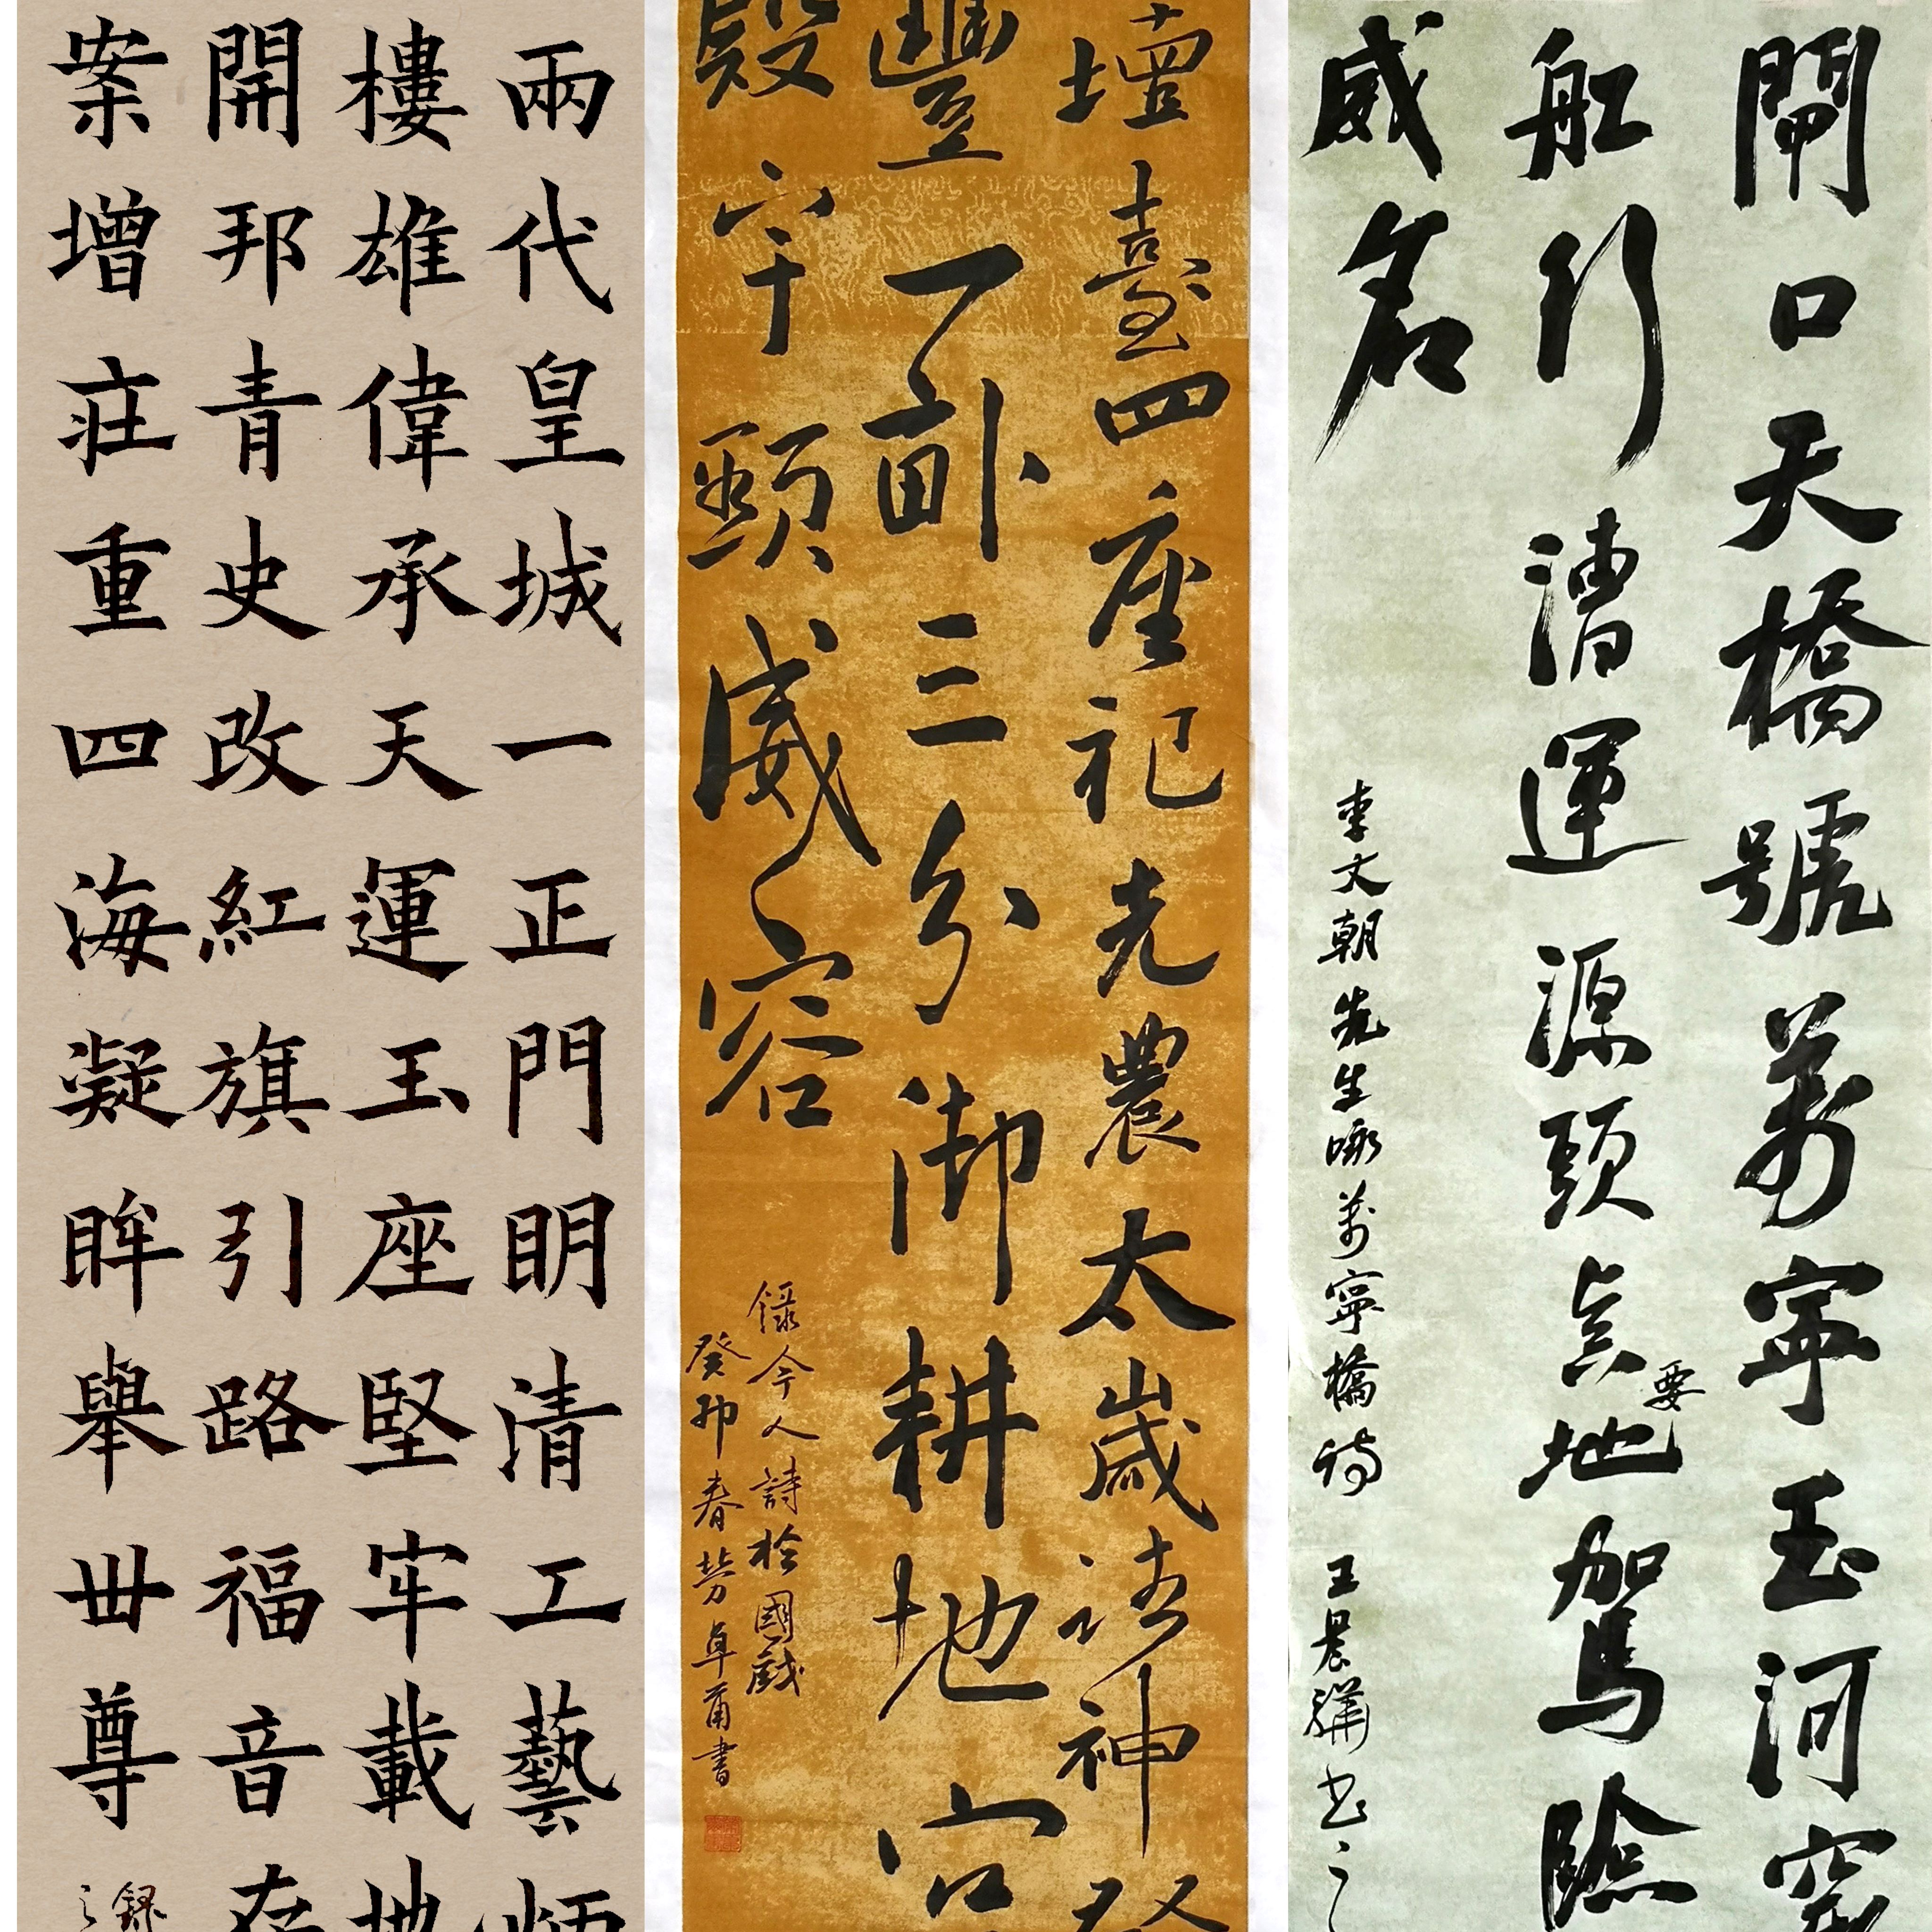 閘口天橋號萬寧玉河
舡行漕運源頭真要地駕險
威名
李文朝先生咏萬寧橋詩 王晨驊書之
壇臺四座祀先農太歲諸神登
豐一畝三分御耕地宮
殿宇顯威容
錄今人詩於國戲
癸卯春卓甫書
兩代皇城一正門明清工藝炳
樓雄偉承天運玉座堅牢載地
開邦青史改紅旗引路福音存
案增莊重四海凝眸舉世尊
錄